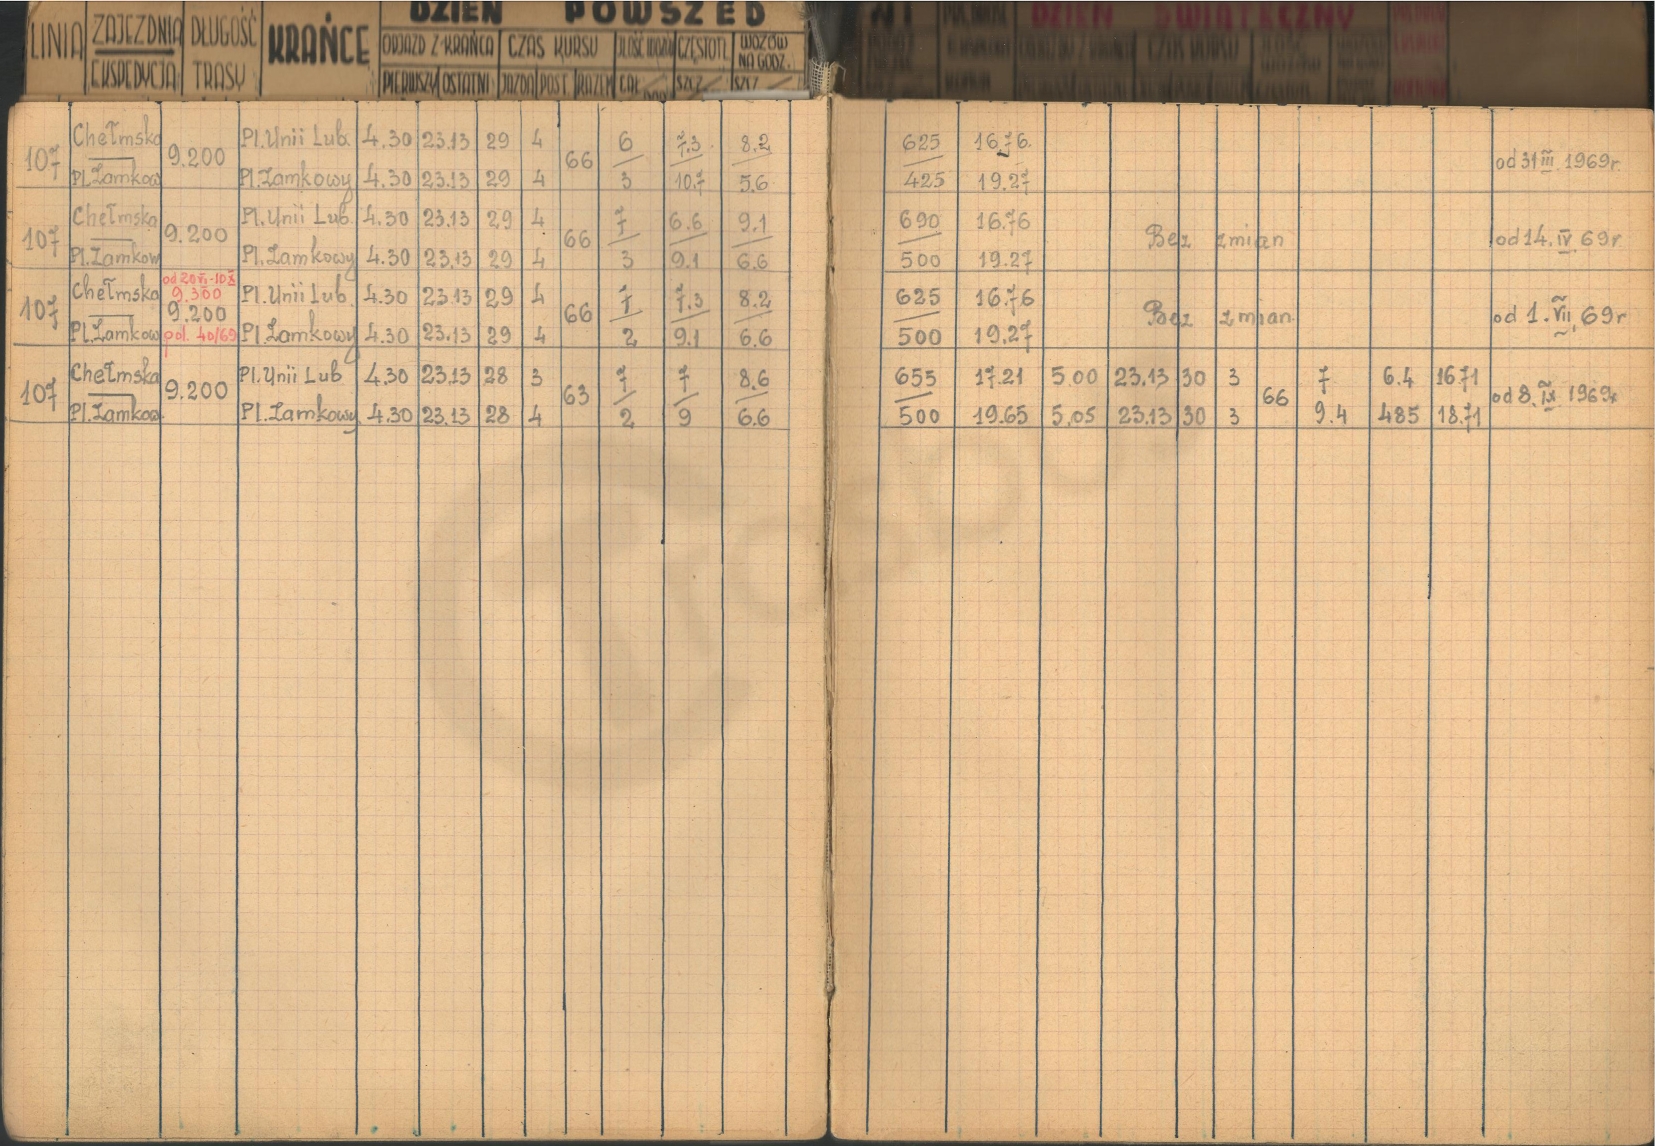 LINIA ZAJEZDNIA EKSPEDYCJA DŁUGOŚĆ TRASY KRAŃCE
DZIEŃ POWSZED
ODJAZD Z KRAŃCA CZAS KURSU CZĘSTOTL WOZÓW NA GODZ.
PIERWSZY OSTATNI JAZDA POST. RAZEM
DZIEŃ ŚWIĄTECZNY
107 Chełmska 9.200 Pl.Unii Lub. 4.30 23.13 29 4 66 6 7.3 8.2 625 16.76 od 31 III 1969r.
Pl.Zamkow Pl.Zamkowy 4.30 23.13 29 4 3 10.7 5.6 425 19.27
107 Chełmska 9.200 Pl.Unii Lub. 4.30 23.13 29 4 66 7 6.6 9.1 690 16.76 Bez zmian od 14. IV 69r
Pl.Zamkow Pl.Zamkowy 4.30 23.13 29 4 3 9.1 6.6 500 19.27
od 20 VI - 10 X
9.300
107 Chełmska 9.200 Pl.Unii Lub. 4.30 23.13 29 4 66 7 7.3 8.2 625 16.76 Bez zmian od 1. VII 69r
Pl.Zamkow pol. 40/69 Pl.Zamkowy 4.30 23.13 29 4 2 9.1 6.6 500 19.27
107 Chełmska 9.200 Pl.Unii Lub 4.30 23.13 28 3 63 7 7 8.6 655 17.21 5.00 23.13 30 3 66 7 6.4 16.71 od 8. IX 1969r
Pl.Zamkow Pl.Zamkowy 4.30 23.13 28 4 2 9 6.6 500 19.65 5.05 23.13 30 3 9.4 485 18.71